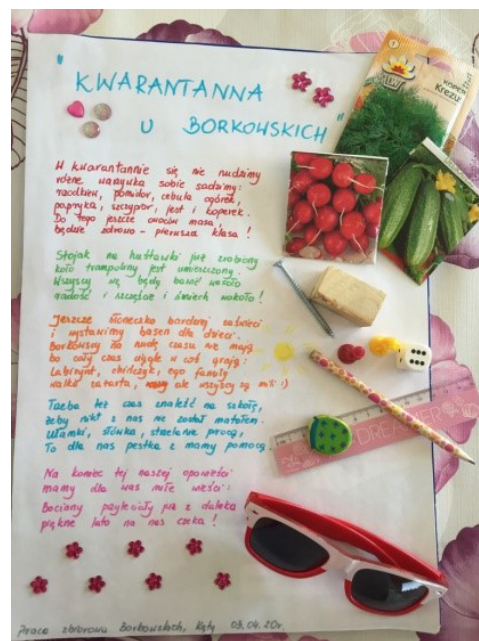 "KWARANTANNA
U BORKOWSKICH"
W kwarantannie się nie nudzimy
różne warzywka sobie sadzimy:
rzodkiew, pomidor, cebula ogórek,
papryka, szczypior, jest i koperek.
Do tego jeszcze owoców masa,
będzie zdrowo - pierwsza klasa!
Stojak na huśtawki już zrobiony
koło trampoliny jest umieszczony.
Wszyscy się będą bawić wkoło
radość i szczęście i śmiech wokoło!
Jeszcze słoneczko bardziej zaświeci
i wystawimy basen dla dzieci.
Borkowscy na nudę czasu nie mają
bo cały czas ciągle w coś grają:
Labirynt, chińczyk, ego family
walka zażarta, ale wszyscy są mili :)
Trzeba też czas znaleźć na szkołę,
żeby nikt z nas nie został matołem.
Ułamki, słówka, strzelanie procą,
To dla nas pestka z mamy pomocą.
Na koniec tej naszej opowieści
mamy dla was miłe wieści:
Bociany przyleciały już z daleka
piękne lato na nas czeka!
Praca zbiorowa Borkowskich, Kąty 03.04.20r.
KOPER
Krezus
DREAMER